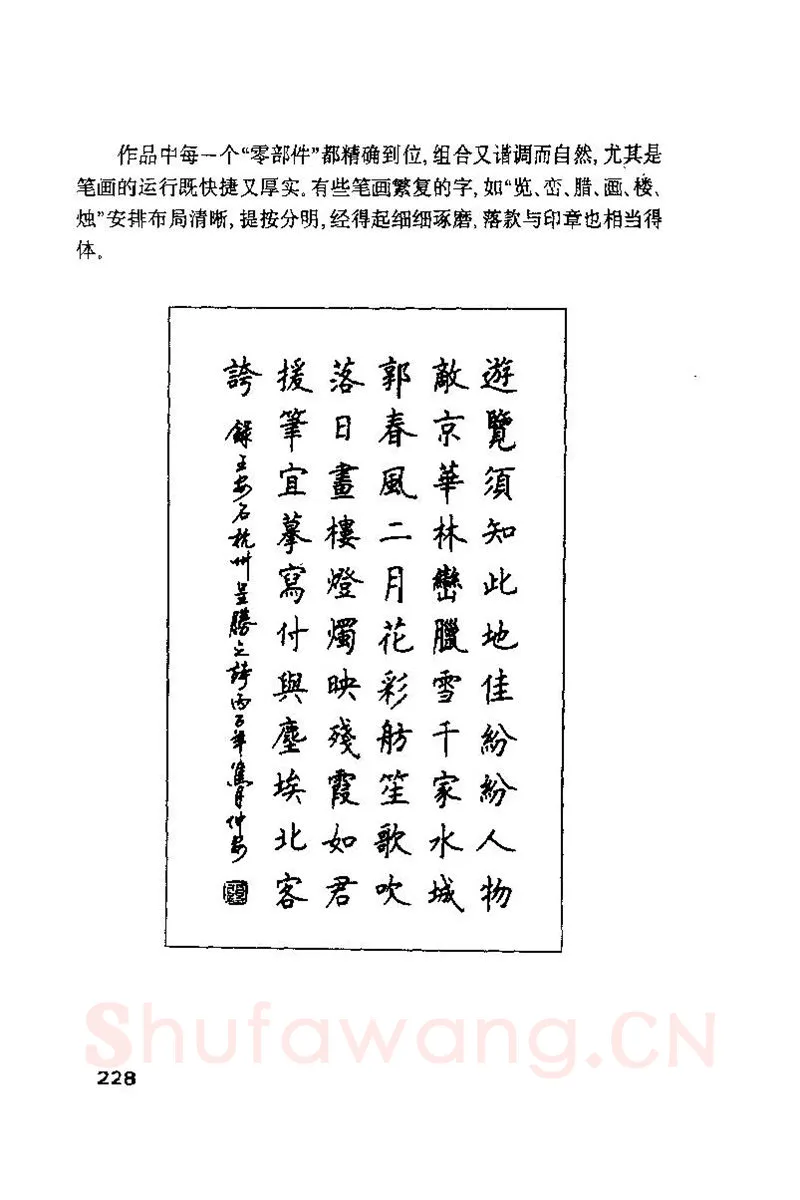 作品中每一个“零部件”都精确到位,组合又谐调而自然,尤其是
笔画的运行既快捷又厚实。有些笔画繁复的字,如“览、峦、腊、画、楼、
烛”安排布局清晰,提按分明,经得起细细琢磨,落款与印章也相当得
体。
遊覽須知此地佳紛紛人物
敵京華林巒臘雪千家水城
郭春風二月花彩舫笙歌吹
落日畫樓燈燭映殘霞如君
援筆宜摹寫付與塵埃北客
誇
錄王安石杭州呈勝之詩丙子年 月仲安
Shufawang.CN
228